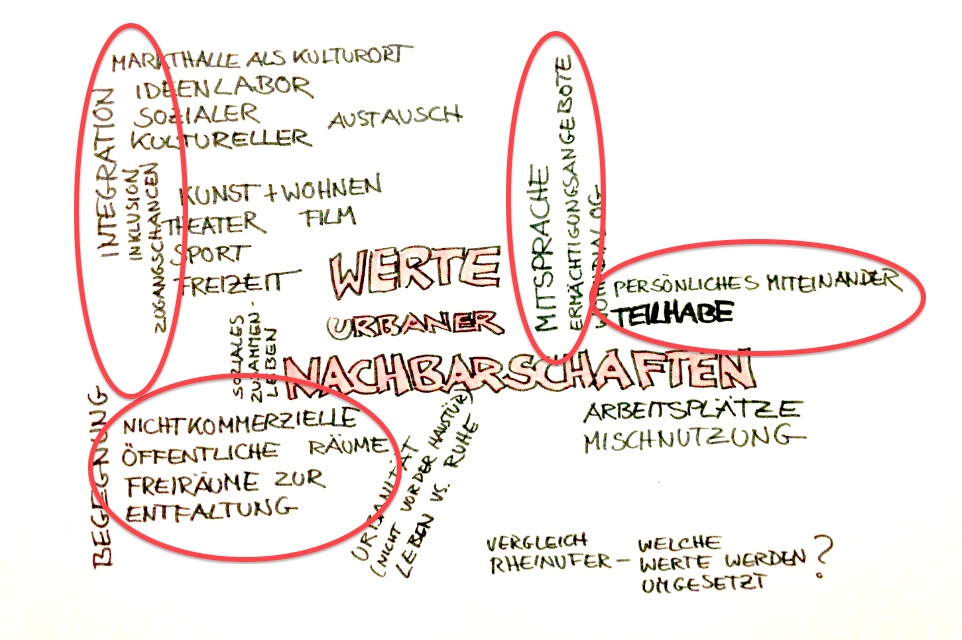 MARKTHALLE ALS KULTURORT
IDEENLABOR
SOZIALER
KULTURELLER AUSTAUSCH
INTEGRATION
INKLUSION
ZUGANGSCHANCEN
KUNST + WOHNEN
THEATER FILM
SPORT
FREIZEIT
MITSPRACHE
ERMÄCHTIGUNGSANGEBOTE
WERTE
URBANER
NACHBARSCHAFTEN
PERSÖNLICHES MITEINANDER
TEILHABE
SOZIALES
ZUSAMMEN-
LEBEN
BEGEGNUNG
NICHTKOMMERZIELLE
ÖFFENTLICHE RÄUME
FREIRÄUME ZUR
ENTFALTUNG
URBANITÄT
(NICHT VOR DER HAUSTÜR)
LEBEN VS. RUHE
ARBEITSPLÄTZE
MISCHNUTZUNG
VERGLEICH
RHEINUFER – WELCHE
WERTE WERDEN
UMGESETZT ?